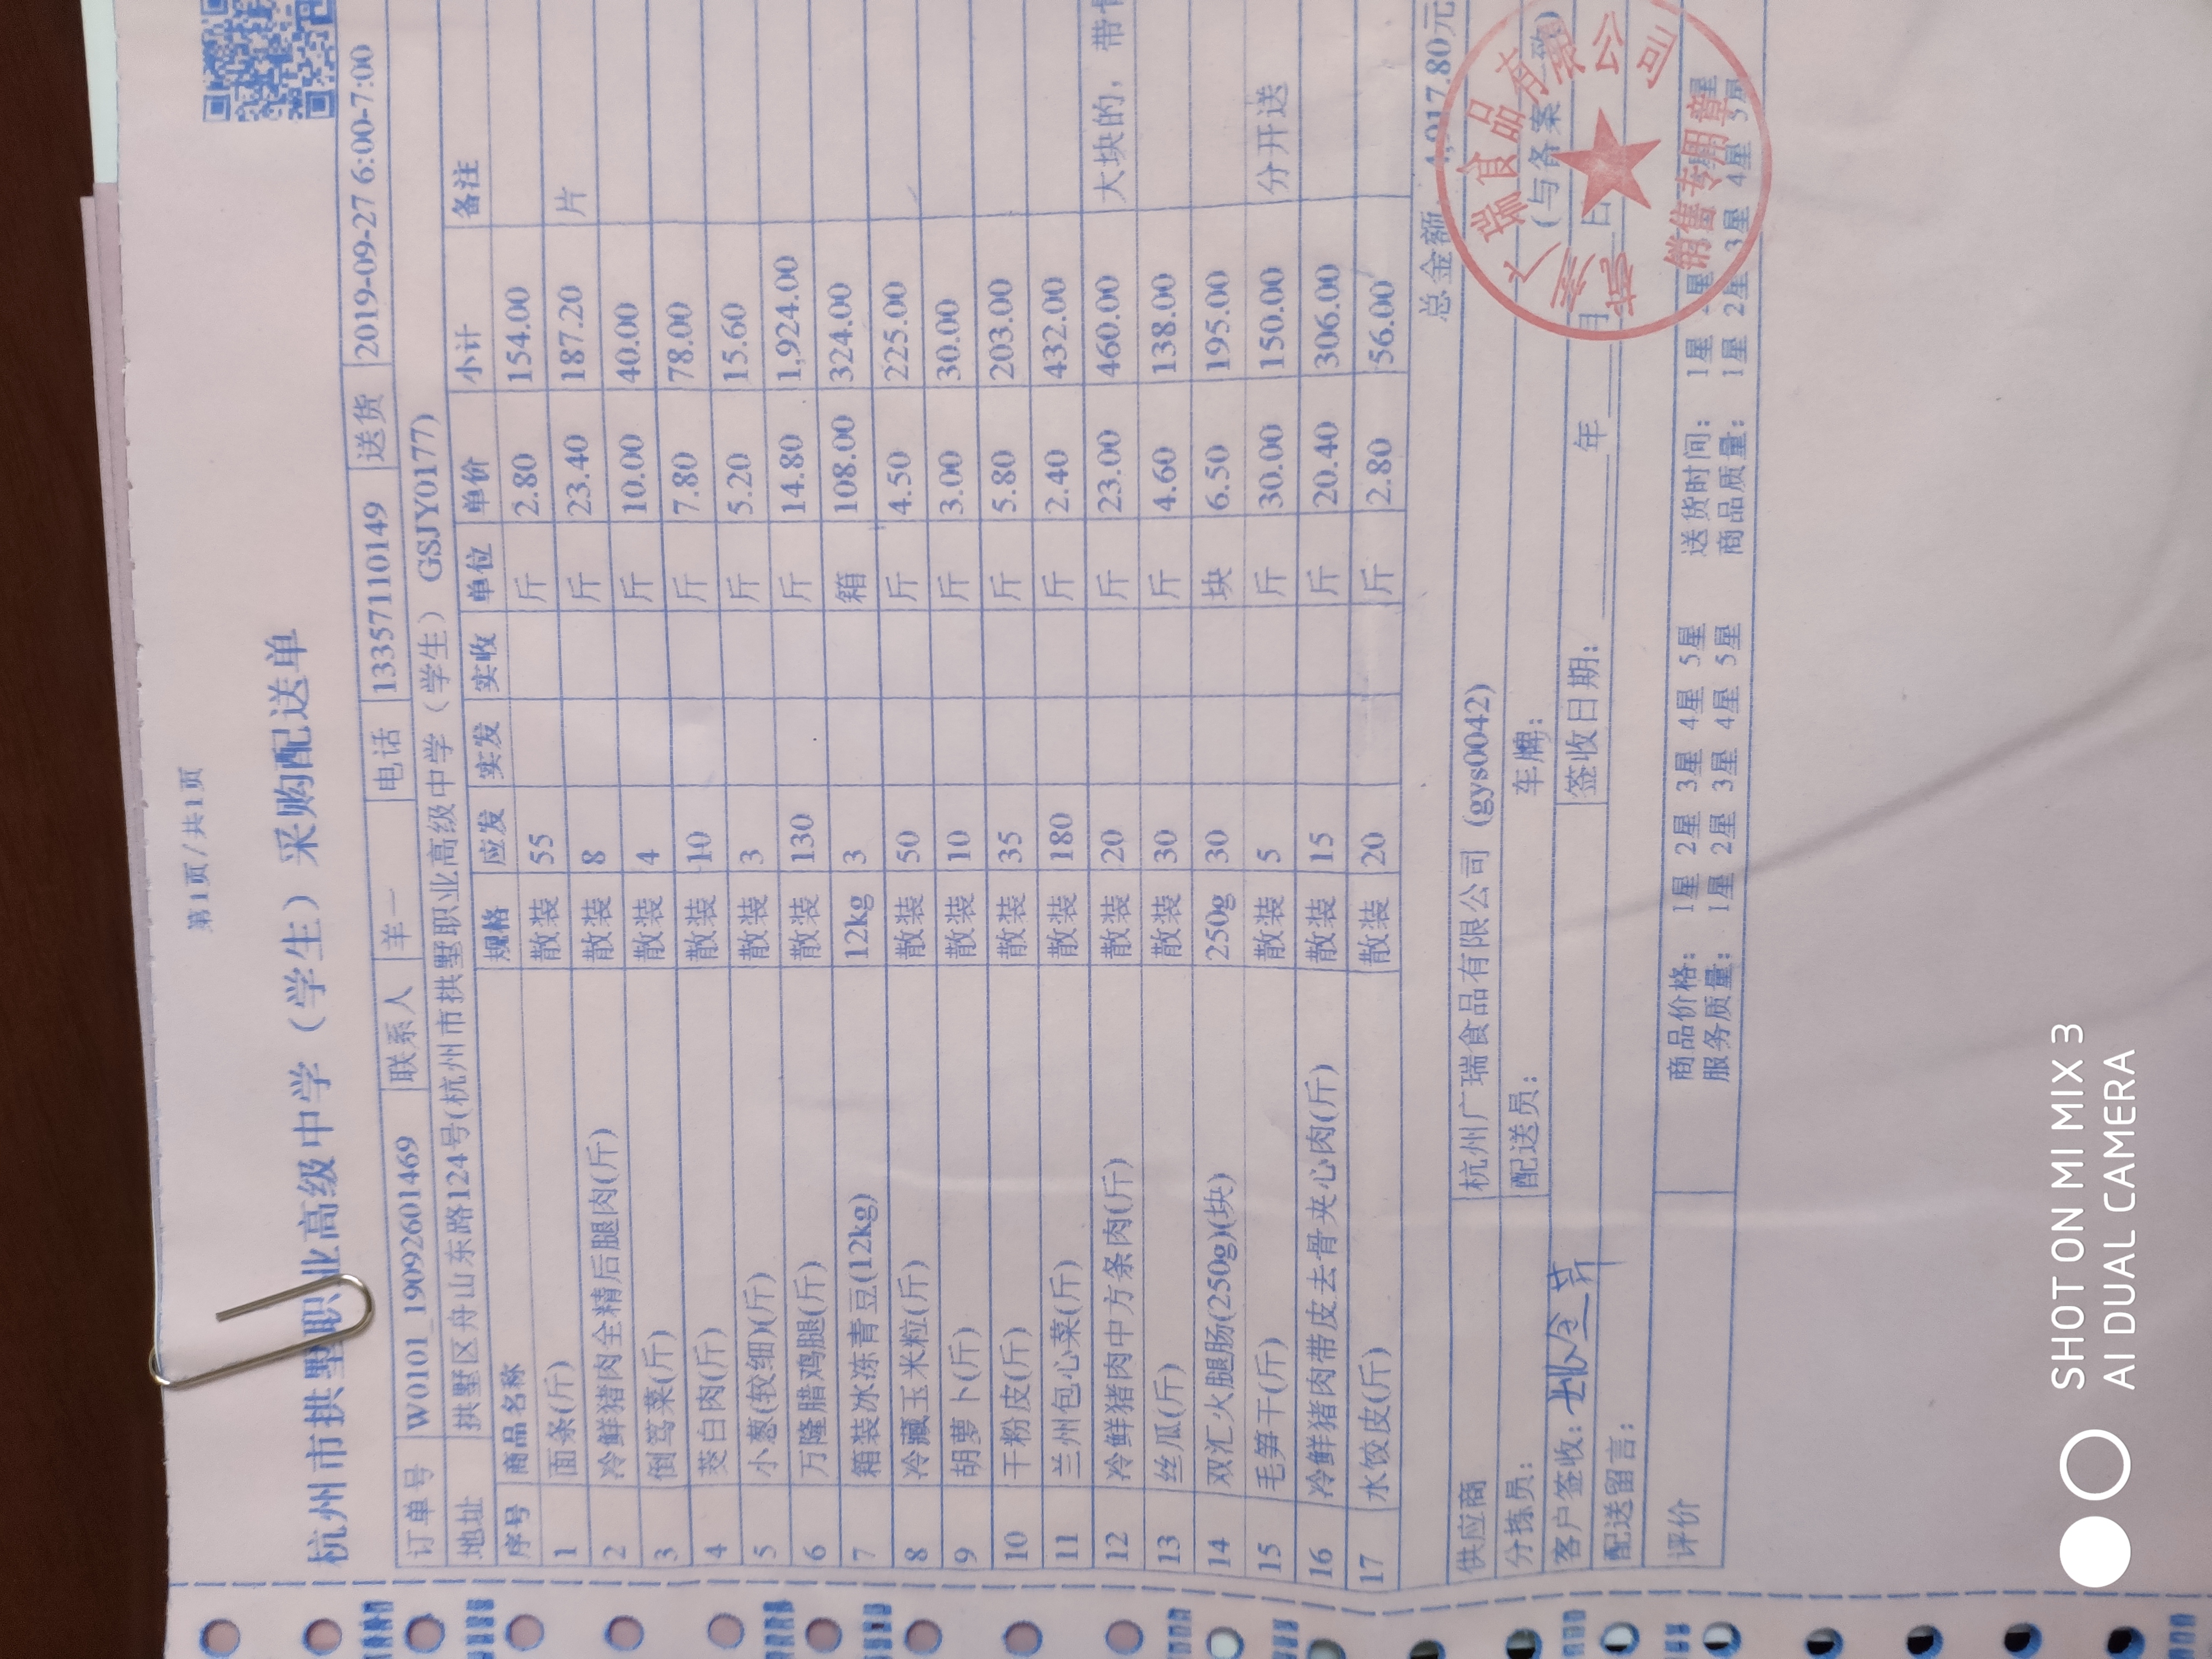 第1页/共1页
杭州市拱墅职业高级中学（学生）采购配送单
订单号 W0101_19092601469 联系人 羊一 电话 13357110149 送货 2019-09-27 6:00-7:00
地址 拱墅区舟山东路124号(杭州市拱墅职业高级中学（学生） GSJY0177)
序号 商品名称 规格 应发 实发 实收 单位 单价 小计 备注
1 面条(斤) 散装 55 斤 2.80 154.00
2 冷鲜猪肉全精后腿肉(斤) 散装 8 斤 23.40 187.20 片
3 倒笃菜(斤) 散装 4 斤 10.00 40.00
4 茭白肉(斤) 散装 10 斤 7.80 78.00
5 小葱(较细)(斤) 散装 3 斤 5.20 15.60
6 万隆腊鸡腿(斤) 散装 130 斤 14.80 1,924.00
7 箱装冰冻青豆(12kg) 12kg 3 箱 108.00 324.00
8 冷藏玉米粒(斤) 散装 50 斤 4.50 225.00
9 胡萝卜(斤) 散装 10 斤 3.00 30.00
10 干粉皮(斤) 散装 35 斤 5.80 203.00
11 兰州包心菜(斤) 散装 180 斤 2.40 432.00
12 冷鲜猪肉中方条肉(斤) 散装 20 斤 23.00 460.00 大块的，带
13 丝瓜(斤) 散装 30 斤 4.60 138.00
14 双汇火腿肠(250g)(块) 250g 30 块 6.50 195.00
15 毛笋干(斤) 散装 5 斤 30.00 150.00 分开送
16 冷鲜猪肉带皮去骨夹心肉(斤) 散装 15 斤 20.40 306.00
17 水饺皮(斤) 散装 20 斤 2.80 56.00
总金额 4,917.80元
供应商 杭州广瑞食品有限公司 (gys0042)
分拣员： 配送员： 车牌： (与备案一致)
客户签收： 签收日期： 年 月 日
配送留言：
评价 商品价格： 1星 2星 3星 4星 5星 送货时间： 1星 2星 3星 4星 5星
服务质量： 1星 2星 3星 4星 5星 商品质量： 1星 2星 3星 4星 5星
瑞食品有限公司
销售专用章
SHOT ON MI MIX 3
AI DUAL CAMERA